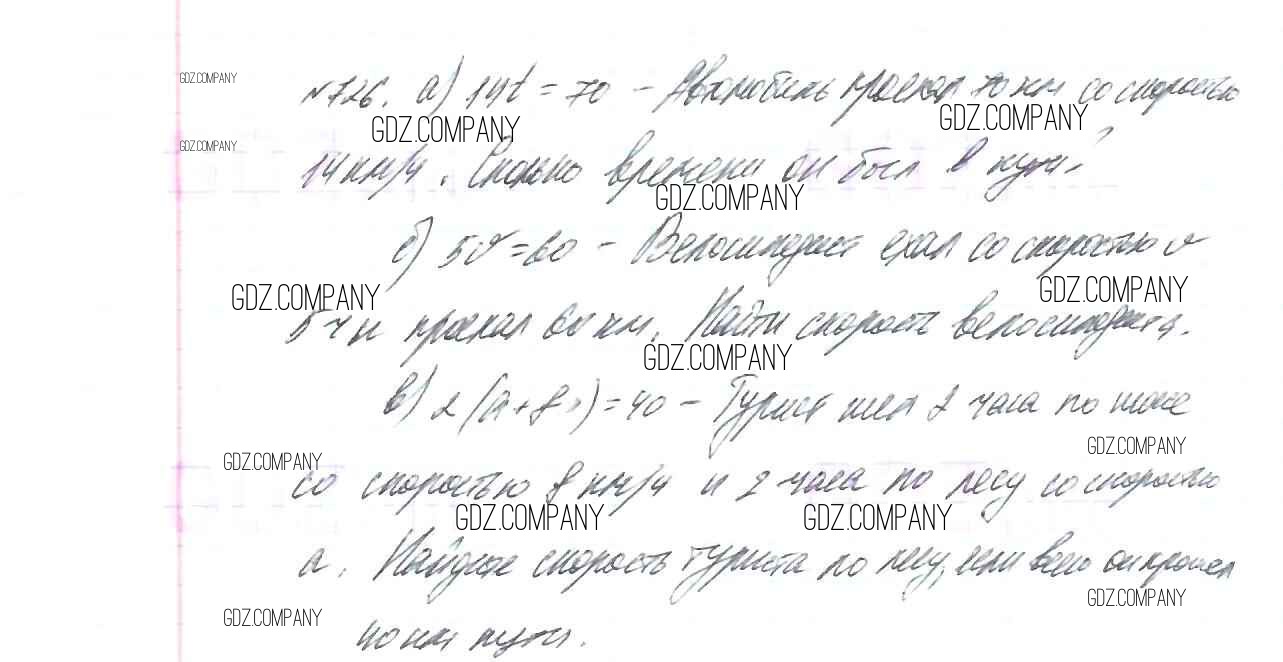 GDZ.COMPANY
№726. а) 14t = 70 – Автомобиль проехал 70 км со скоростью
GDZ.COMPANY GDZ.COMPANY
GDZ.COMPANY
14 км/ч. Сколько времени он был в пути?
GDZ.COMPANY
б) 5v = 60 – Велосипедист ехал со скоростью v
GDZ.COMPANY GDZ.COMPANY
5 ч и проехал 60 км. Найти скорость велосипедиста.
GDZ.COMPANY
в) 2(a+8) = 40 – Турист шел 2 часа по
GDZ.COMPANY
GDZ.COMPANY
со скоростью 8 км/ч и 2 часа по лесу со скоростью
GDZ.COMPANY GDZ.COMPANY
a. Найдите скорость туриста по лесу, если всего он прошел
GDZ.COMPANY
GDZ.COMPANY
40 км пути.